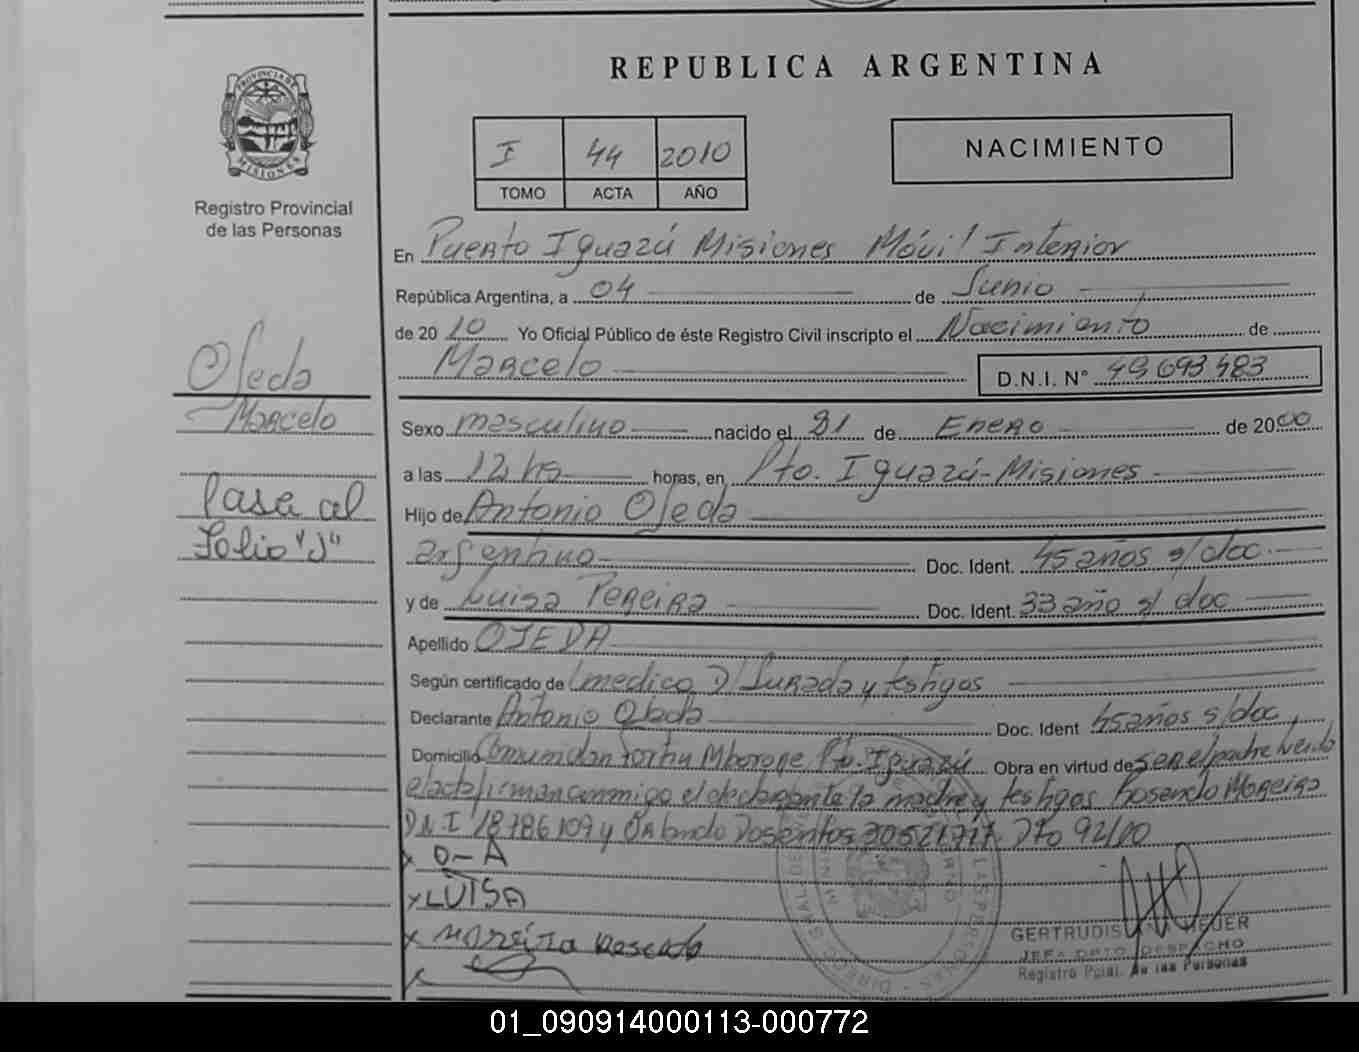 REPUBLICA ARGENTINA
PROVINCIA DE
MISIONES
Registro Provincial
de las Personas
I 44 2010
TOMO ACTA AÑO
NACIMIENTO
En Puerto Iguazú Misiones Móvil Interior
República Argentina, a 04 de Junio
de 20 10 Yo Oficial Público de éste Registro Civil inscripto el Nacimiento de
Marcelo D.N.I. N° 49693483
Ojeda
Marcelo
Pase al
Folio "J"
Sexo masculino nacido el 31 de Enero de 2000
a las 12 hs horas, en Pto. Iguazú-Misiones
Hijo de Antonio Ojeda
argentino Doc. Ident. 45 años s/doc.
y de Luisa Pereira Doc. Ident. 33 año s/ doc
Apellido OJEDA
Según certificado de medico D/Jurada y testigos
Declarante Antonio Ojeda Doc. Ident 45 años s/doc
Domicilio Comunidad Fortin Mborore Pto. Iguazú Obra en virtud de ser el padre Leida
el acta firman conmigo el declarante la madre y testigos Rosendo Moreira
DNI 18786109 y Orlando Dosantos Dto 92/10
x O-A
x LUISA
x Moreira Rosendo
x
GERTRUDIS MEUER
JEFA DPTO DESPACHO
Registro Pcial. de las Personas
01_090914000113-000772